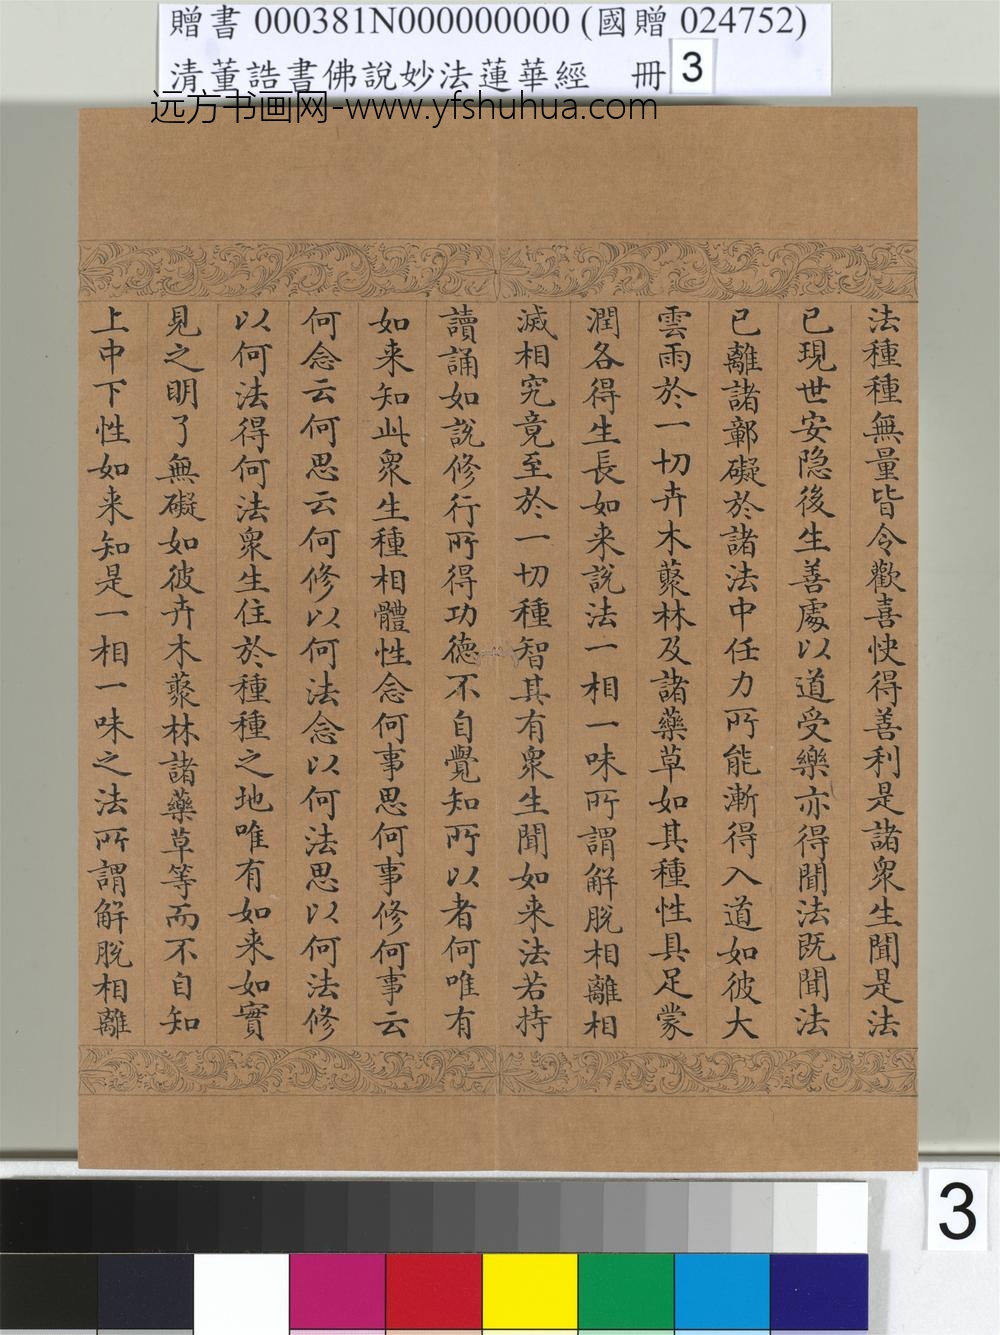 贈書 000381N000000000 (國贈 024752)
清董誥書佛說妙法蓮華經 冊 3
远方书画网-www.yfshuhua.com
法種種無量皆令歡喜快得善利是諸衆生聞是法
已現世安隐後生善處以道受樂亦得聞法既聞法
已離諸鄣礙於諸法中任力所能漸得入道如彼大
雲雨於一切卉木藂林及諸藥草如其種性具足蒙
潤各得生長如来說法一相一味所謂解脱相離相
滅相究竟至於一切種智其有衆生聞如来法若持
讀誦如說修行所得功德不自覺知所以者何唯有
如来知此衆生種相體性念何事思何事修何事云
何念云何思云何修以何法念以何法思以何法修
以何法得何法衆生住於種種之地唯有如来如實
見之明了無礙如彼卉木藂林諸藥草等而不自知
上中下性如来知是一相一味之法所謂解脱相離
3